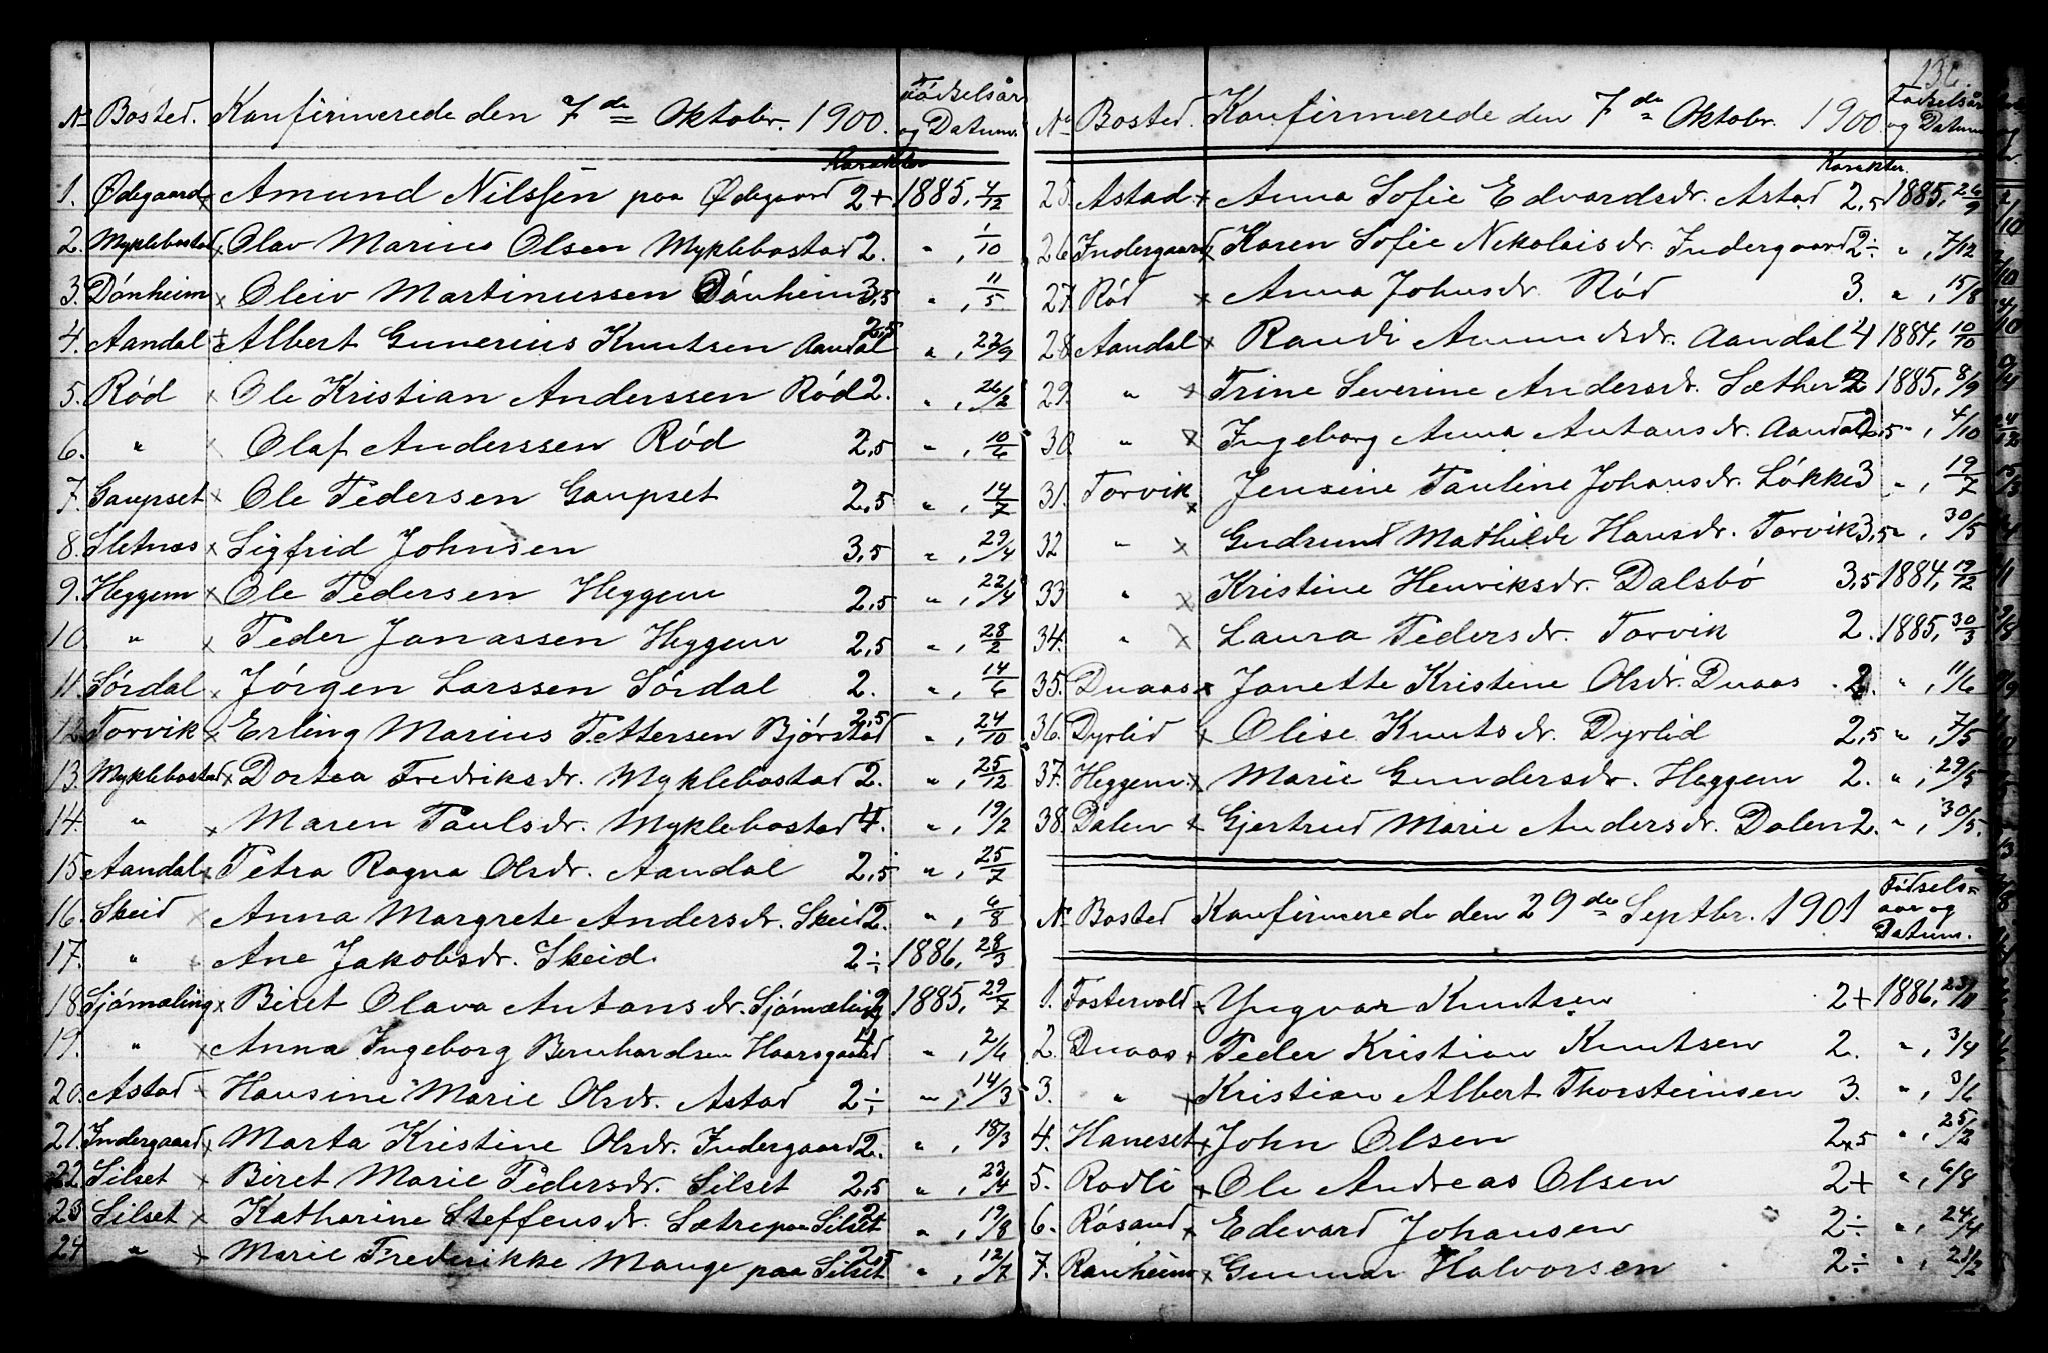 No Bosted. Konfirmerede den 7de Oktobr. 1900. Födselsår og Datum.
Karakter
1. Ødegaard x Amund Nilssen paa Ødegaard 2+ 1885, 4/12
2. Myklebostad x Olav Marius Olsen Myklebostad 2. " , 1/10
3. Dönheim x Oleiv Martinussen Dönheim 3,5 " , 11/5
4. Aandal x Albert Gunerius Knutsen Aandal 2,5 " , 23/9
5. Röd x Ole Kristian Anderssen Röd 2. " , 26/2
6. " x Olaf Anderssen Röd 2,5 " , 10/6
7. Gaupset x Ole Pedersen Gaupset 2,5 " , 14/7
8. Sletnæs x Sigfrid Johnsen 3,5 " , 29/4
9. Heggem x Ole Pedersen Heggem 2,5 " , 22/4
10. " x Peder Jonassen Heggem 2,5 " , 28/2
11. Sördal x Jörgen Larssen Sördal 2. " , 14/6
12. Torvik x Erling Marius Pettersen Bjørstad 2,5 " , 24/10
13. Myklebostad x Dortea Fredriksdr. Myklebostad 2. " , 25/12
14. " x Maren Paulsdr. Myklebostad 4. " , 19/2
15. Aandal x Petra Ragna Olsdr. Aandal 2,5 " , 25/7
16. Skeid x Anna Margrete Andersdr. Skeid 2. " , 6/8
17. " x Ane Jakobsdr. Skeid. 2÷ 1886, 28/3
18. Sjömæling x Beret Olava Antonsdr. Sjömæling 2. 1885, 29/7
19. " x Anna Ingeborg Bernhardsen Haarsgaard 4 " , 2/6
20. Astad x Hansine Marie Olsdr. Astad 2÷ " , 14/3
21. Indergaard x Marta Kristine Olsdr. Indergaard 2. " , 18/3
22. Silset x Beret Marie Pedersdr. Silset 2,5 " , 23/4
23. Silset x Katharine Steffensdr. Sætre paa Silset 2. " , 19/8
24. " x Marie Frederikke Mange paa Silset 2,5 " , 12/7
136.
No Bosted. Konfirmerede den 7de Oktobr. 1900 Födselsår og Datum
Karakter.
25. Astad x Anna Sofie Edvardsdr. Astad 2,5 1885, 26/9
26. Indergaard x Karen Sofie Nikolaisdr. Indergaard 2÷ " , 7/12
27. Röd x Anna Johnsdr. Röd 3. " , 15/8
28. Aandal x Randi Amundsdr. Aandal 4 1884, 10/10
29. " x Trine Severine Andersdr. Sæther 2 1885, 8/9
30. " x Ingeborg Anna Antonsdr. Aandal 2,5 " , 4/10
31. Torvik x Jensine Pauline Johansdr. Lökke 3 " , 19/7
32 " x Gudrun Mathilde Hansdr. Torvik 3,5 " , 30/5
33 " x Kristine Henriksdr. Dalsbö 3,5 1884, 19/12
34. " x Laura Pedersdr. Torvik 2. 1885, 30/3
35. Duaas x Janette Kristine Olsdr. Duaas 2. " , 11/6
36. Dyrlid x Olise Knutsdr. Dyrlid 2,5 " , 7/5
37. Heggem. x Marie Gundersdr. Heggem 2. " , 29/5
38. Dalen x Gjertrud Marie Andersdr. Dalen 2. " , 30/5.
No Bosted Konfirmerede den 29de Septbr. 1901 Födsels= aar og Datum.
1. Fostervold x Yngvar Knutsen 2+ 1886, 23/11
2. Duaas x Peder Kristian Knutsen 2. " , 3/4
3. " x Kristian Albert Thorsteinsen 3. " , 3/6
4. Haneset x John Olsen 2,5 " , 25/2
5. Rodli x Ole Andreas Olsen 2+ " , 6/8
6. Rösand x Edevard Johansen 2÷ " , 24/4
7. Ranheim x Gunnar Halvorsen 2÷ " , 21/2